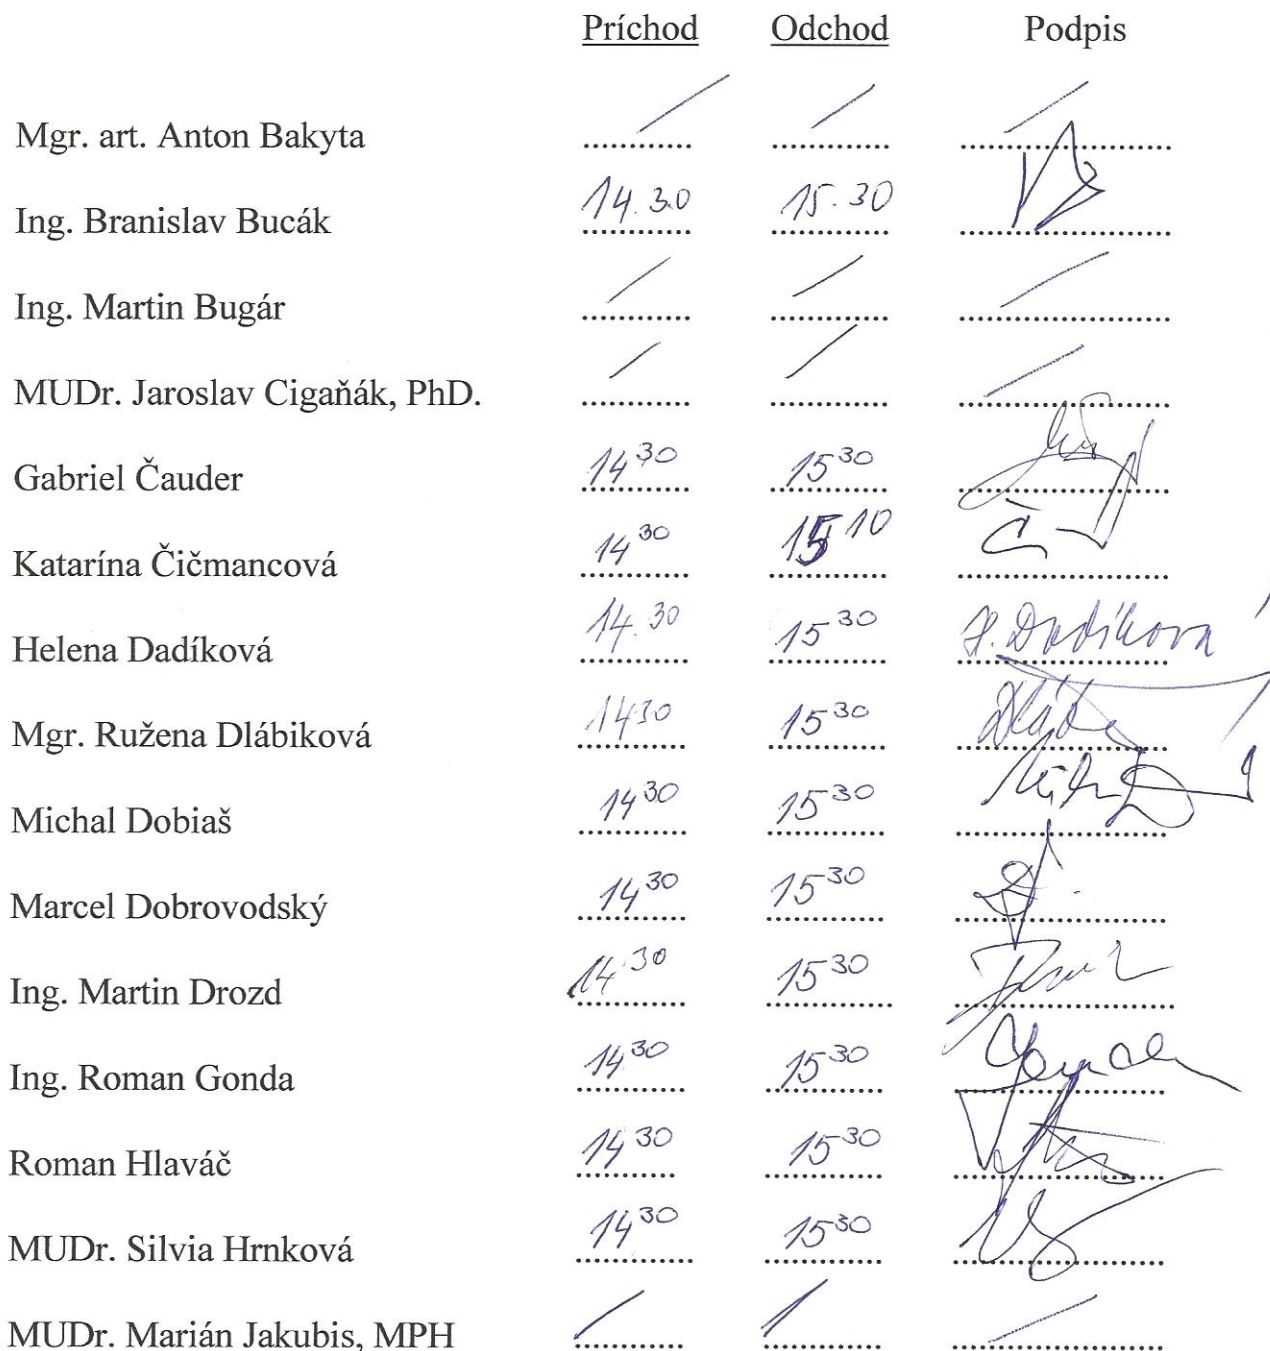 Príchod Odchod Podpis
Mgr. art. Anton Bakyta ........... / ........... / ..................... /
Ing. Branislav Bucák 14.30 15.30
Ing. Martin Bugár / / /
MUDr. Jaroslav Cigaňák, PhD. / / /
Gabriel Čauder 14 30 15 30
Katarína Čičmancová 14 30 15 10
Helena Dadíková 14.30 15 30 H. Dadíková
Mgr. Ružena Dlábiková 14 30 15 30
Michal Dobiaš 14 30 15 30
Marcel Dobrovodský 14 30 15 30
Ing. Martin Drozd 14 30 15 30
Ing. Roman Gonda 14 30 15 30
Roman Hlaváč 14 30 15 30
MUDr. Silvia Hrnková 14 30 15 30
MUDr. Marián Jakubis, MPH / / /